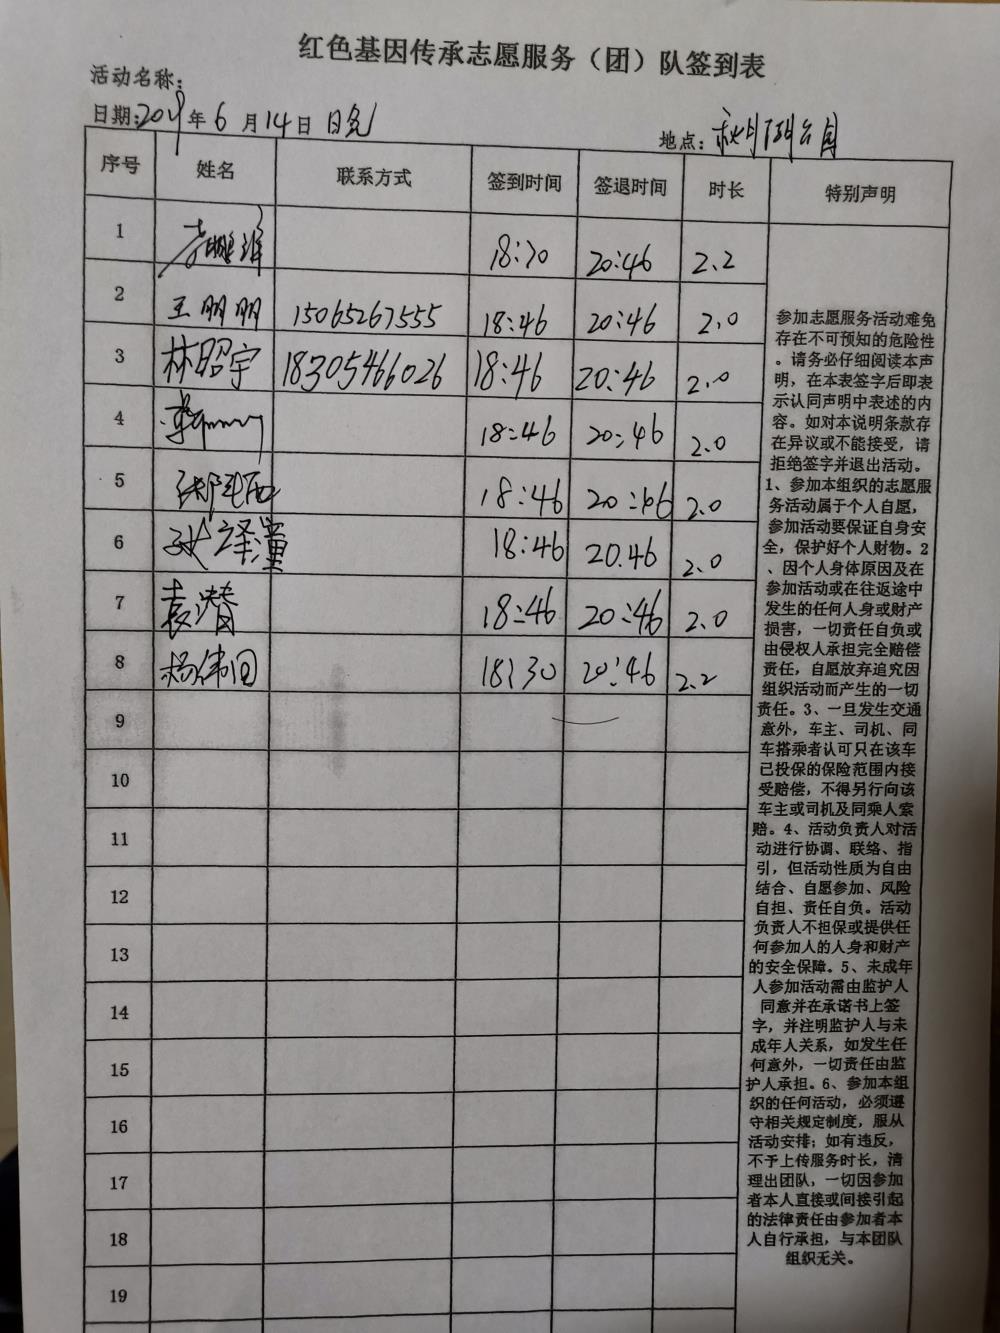 红色基因传承志愿服务（团）队签到表
活动名称：
日期：2019年6月14日 地点：
序号 姓名 联系方式 签到时间 签退时间 时长 特别声明
1 18:30 20:46 2.2
2 王朋朋 15065267555 18:46 20:46 2.0
3 林昭宇 18305466026 18:46 20:46 2.0
4 18:46 20:46 2.0
5 18:46 20:46 2.0
6 18:46 20.46 2.0
7 袁潜 18:46 20:46 2.0
8 杨伟 18:30 20:46 2.2
9
10
11
12
13
14
15
16
17
18
19
参加志愿服务活动难免
存在不可预知的危险性
。请务必仔细阅读本声
明，在本表签字后即表
示认同声明中表述的内
容。如对本说明条款存
在异议或不能接受，请
拒绝签字并退出活动。
1、参加本组织的志愿服
务活动属于个人自愿，
参加活动要保证自身安
全，保护好个人财物。2
、因个人身体原因及在
参加活动或在往返途中
发生的任何人身或财产
损害，一切责任自负或
由侵权人承担完全赔偿
责任，自愿放弃追究因
组织活动而产生的一切
责任。3、一旦发生交通
意外，车主、司机、同
车搭乘者认可只在该车
已投保的保险范围内接
受赔偿，不得另行向该
车主或司机及同乘人索
赔。4、活动负责人对活
动进行协调、联络、指
引，但活动性质为自由
结合、自愿参加、风险
自担、责任自负。活动
负责人不担保或提供任
何参加人的人身和财产
的安全保障。5、未成年
人参加活动需由监护人
同意并在承诺书上签
字，并注明监护人与未
成年人关系，如发生任
何意外，一切责任由监
护人承担。6、参加本组
织的任何活动，必须遵
守相关规定制度，服从
活动安排；如有违反，
不予上传服务时长，清
理出团队，一切因参加
者本人直接或间接引起
的法律责任由参加者本
人自行承担，与本团队
组织无关。